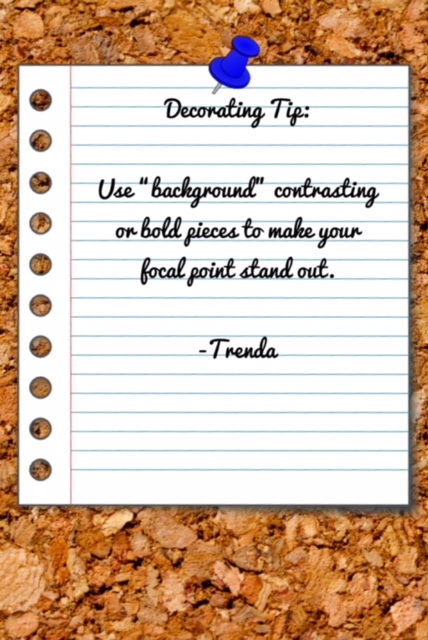 Decorating Tip:
Use "background" contrasting
or bold pieces to make your
focal point stand out.
-Trenda